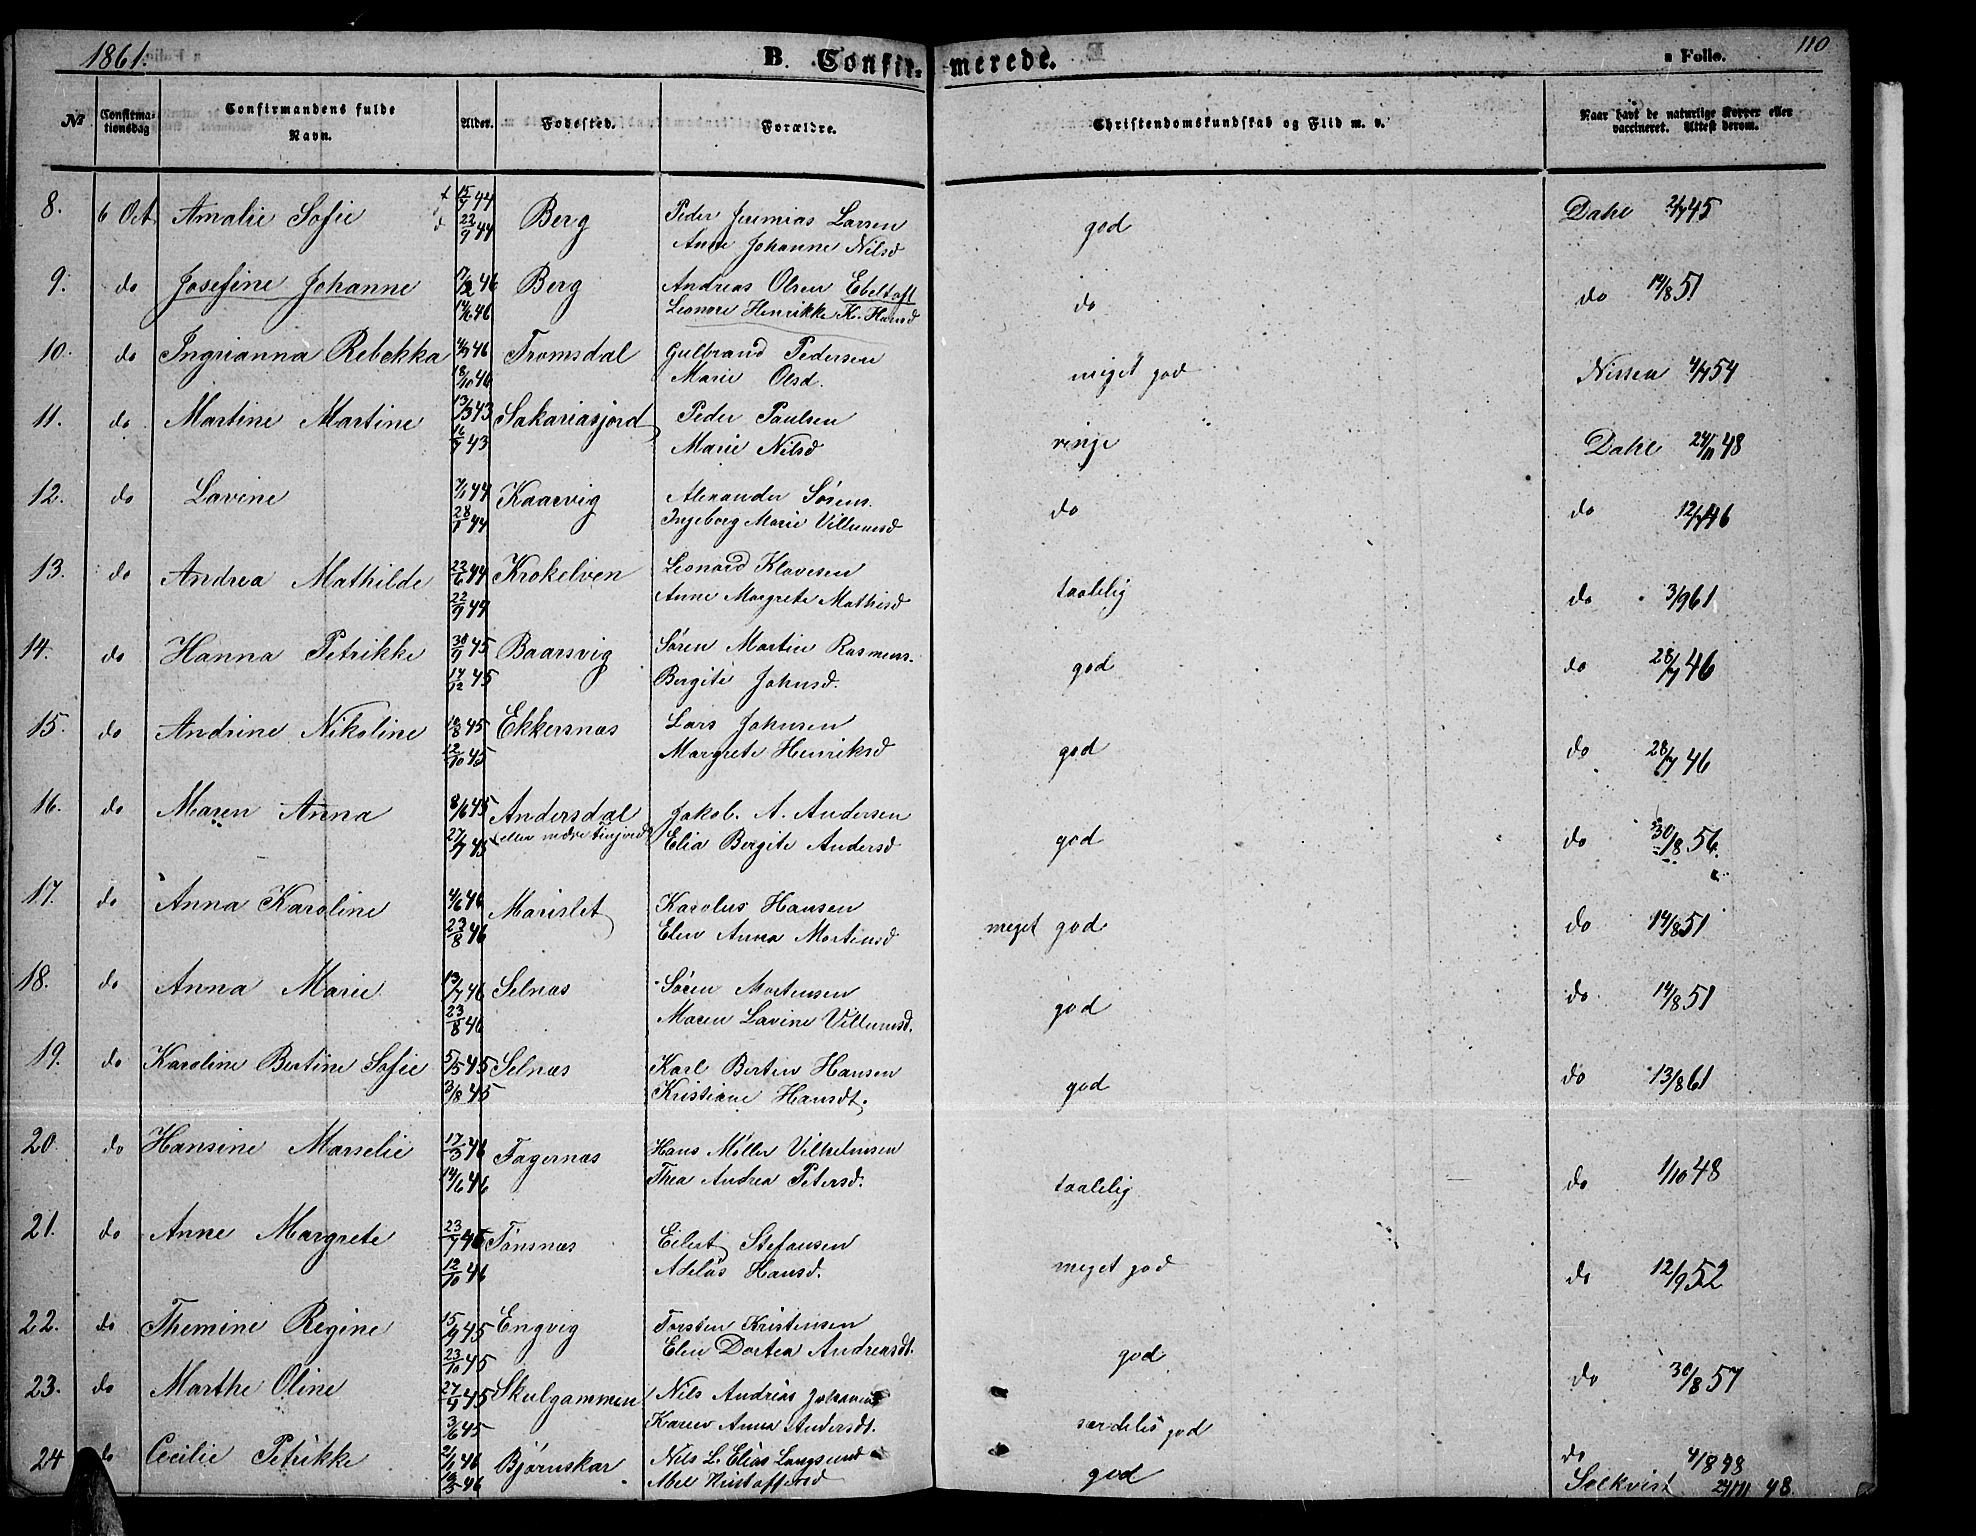 1861.
B. Confirmerede.
n Folio.
110
No
Confirmationsdag
Confirmandens fulde Navn.
Alder.
Fødested.
Forældre.
Christendomskundskab og Flid m. v.
Naar havt de naturlige Kopper eller vaccineret. Attest derom.
8. 6 Oct. Amalie Sofie 15/8 44 Berg Peder Jeremias Larsen god Dahl 2/7 45
22/9 44 Ane Johanne Nilsd
9. do Josefine Johanne 17/2 46 Berg Andreas Olsen Ebeltoft do do 14/8 51
14/6 46 Leonore Henrikke K. Hansd
10. do Ingrianna Rebekka 46 Tromsdal Gulbrand Pedersen meget god Nissen 4/7 54
18/10 46 Marie Olsd.
11. do Martine Martine 13/3 43 Sakariasjord Peder Paulsen ringe Dahl 24/11 48
16/9 43 Marie Nilsd
12. do Lavine 7/1 44 Kaarvig Alexander Sørens. do do 12/7 46
28/1 44 Ingeborg Marie Villumsd
13. do Andrea Mathilde 22/6 44 Krokelven Leonard Klavesen taalelig do 3/9 61
22/9 44 Anne Margrete Mathisd
14. do Hanna Petrikke 30/9 45 Baarsvig Søren Martin Rasmuss. god do 28/7 46
14/12 45 Bergite Johnsd.
15. do Andrine Nikoline 18/8 45 Ekkersnæs Lars Johnsen god do 28/7 46
12/10 45 Margrete Henriksd
16. do Maren Anna 8/6 45 Andersdal Jakob. A. Andersen god do 30/8 56.
27/7 45 eller nedre Tinjord Elia Bergite Andersd
17. do Anna Karoline 4/6 46 Marislet Karolus Hansen meget god do 14/8 51
23/8 46 Elen Anna Mortensd
18. do Anna Marie 13/7 46 Selnæs Søren Mortensen god do 14/8 51
23/8 46 Maren Lavine Villumsd.
19. do Karoline Bertine Sofie 5/5 45 Selnæs Karl Bertin Hansen god do 13/8 61
3/8 45 Kristiane Hansdt.
20. do Hansine Marselie 17/3 46 Fagernæs Hans Møller Vilhelmsen taalelig do 1/10 48
14/6 46 Thea Andrea Petersd.
21. do Anne Margrete 23/7 46 Tønsnæs Eilert Stefansen meget god do 12/9 52
12/10 46 Adelus Hansd.
22. do Themine Regine 15/9 45 Engvig Torsten Kristensen god do 30/8 57
23/10 45 Elen Dortea Andreasdt.
23. do Marthe Oline 27/4 45 Skulgammen Nils Andrias særdeles god do 4/8 48
3/6 45 Karen Anna Andersdt.
24 do Cecilie Petrikke 2/1 46 Bjørnskar Nils L. Elias Langsund god Selkvist 24/11 48.
19/3 46 Abel Kristoffersd